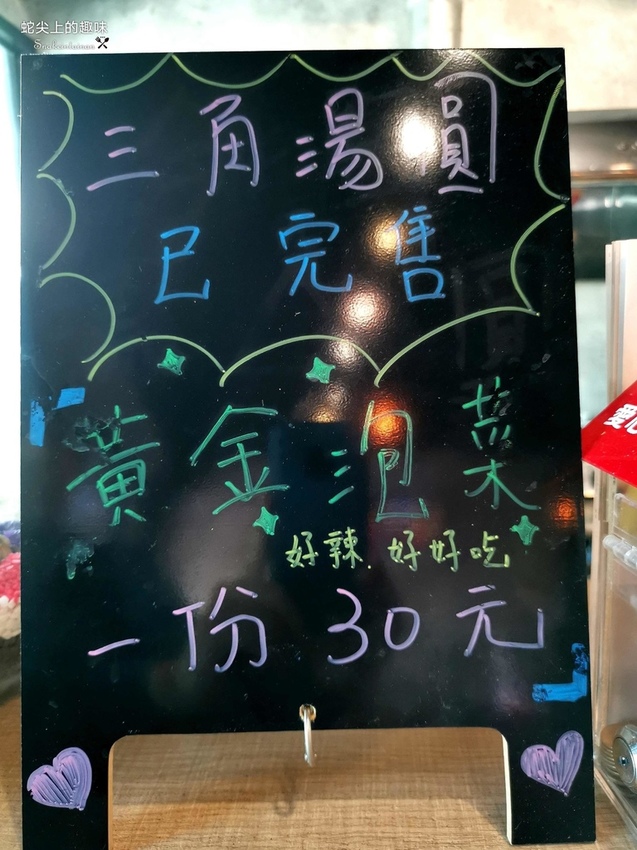 蛇尖上的趣味
三角湯圓
已完售
黃金泡菜
好辣.好好吃
一份30元